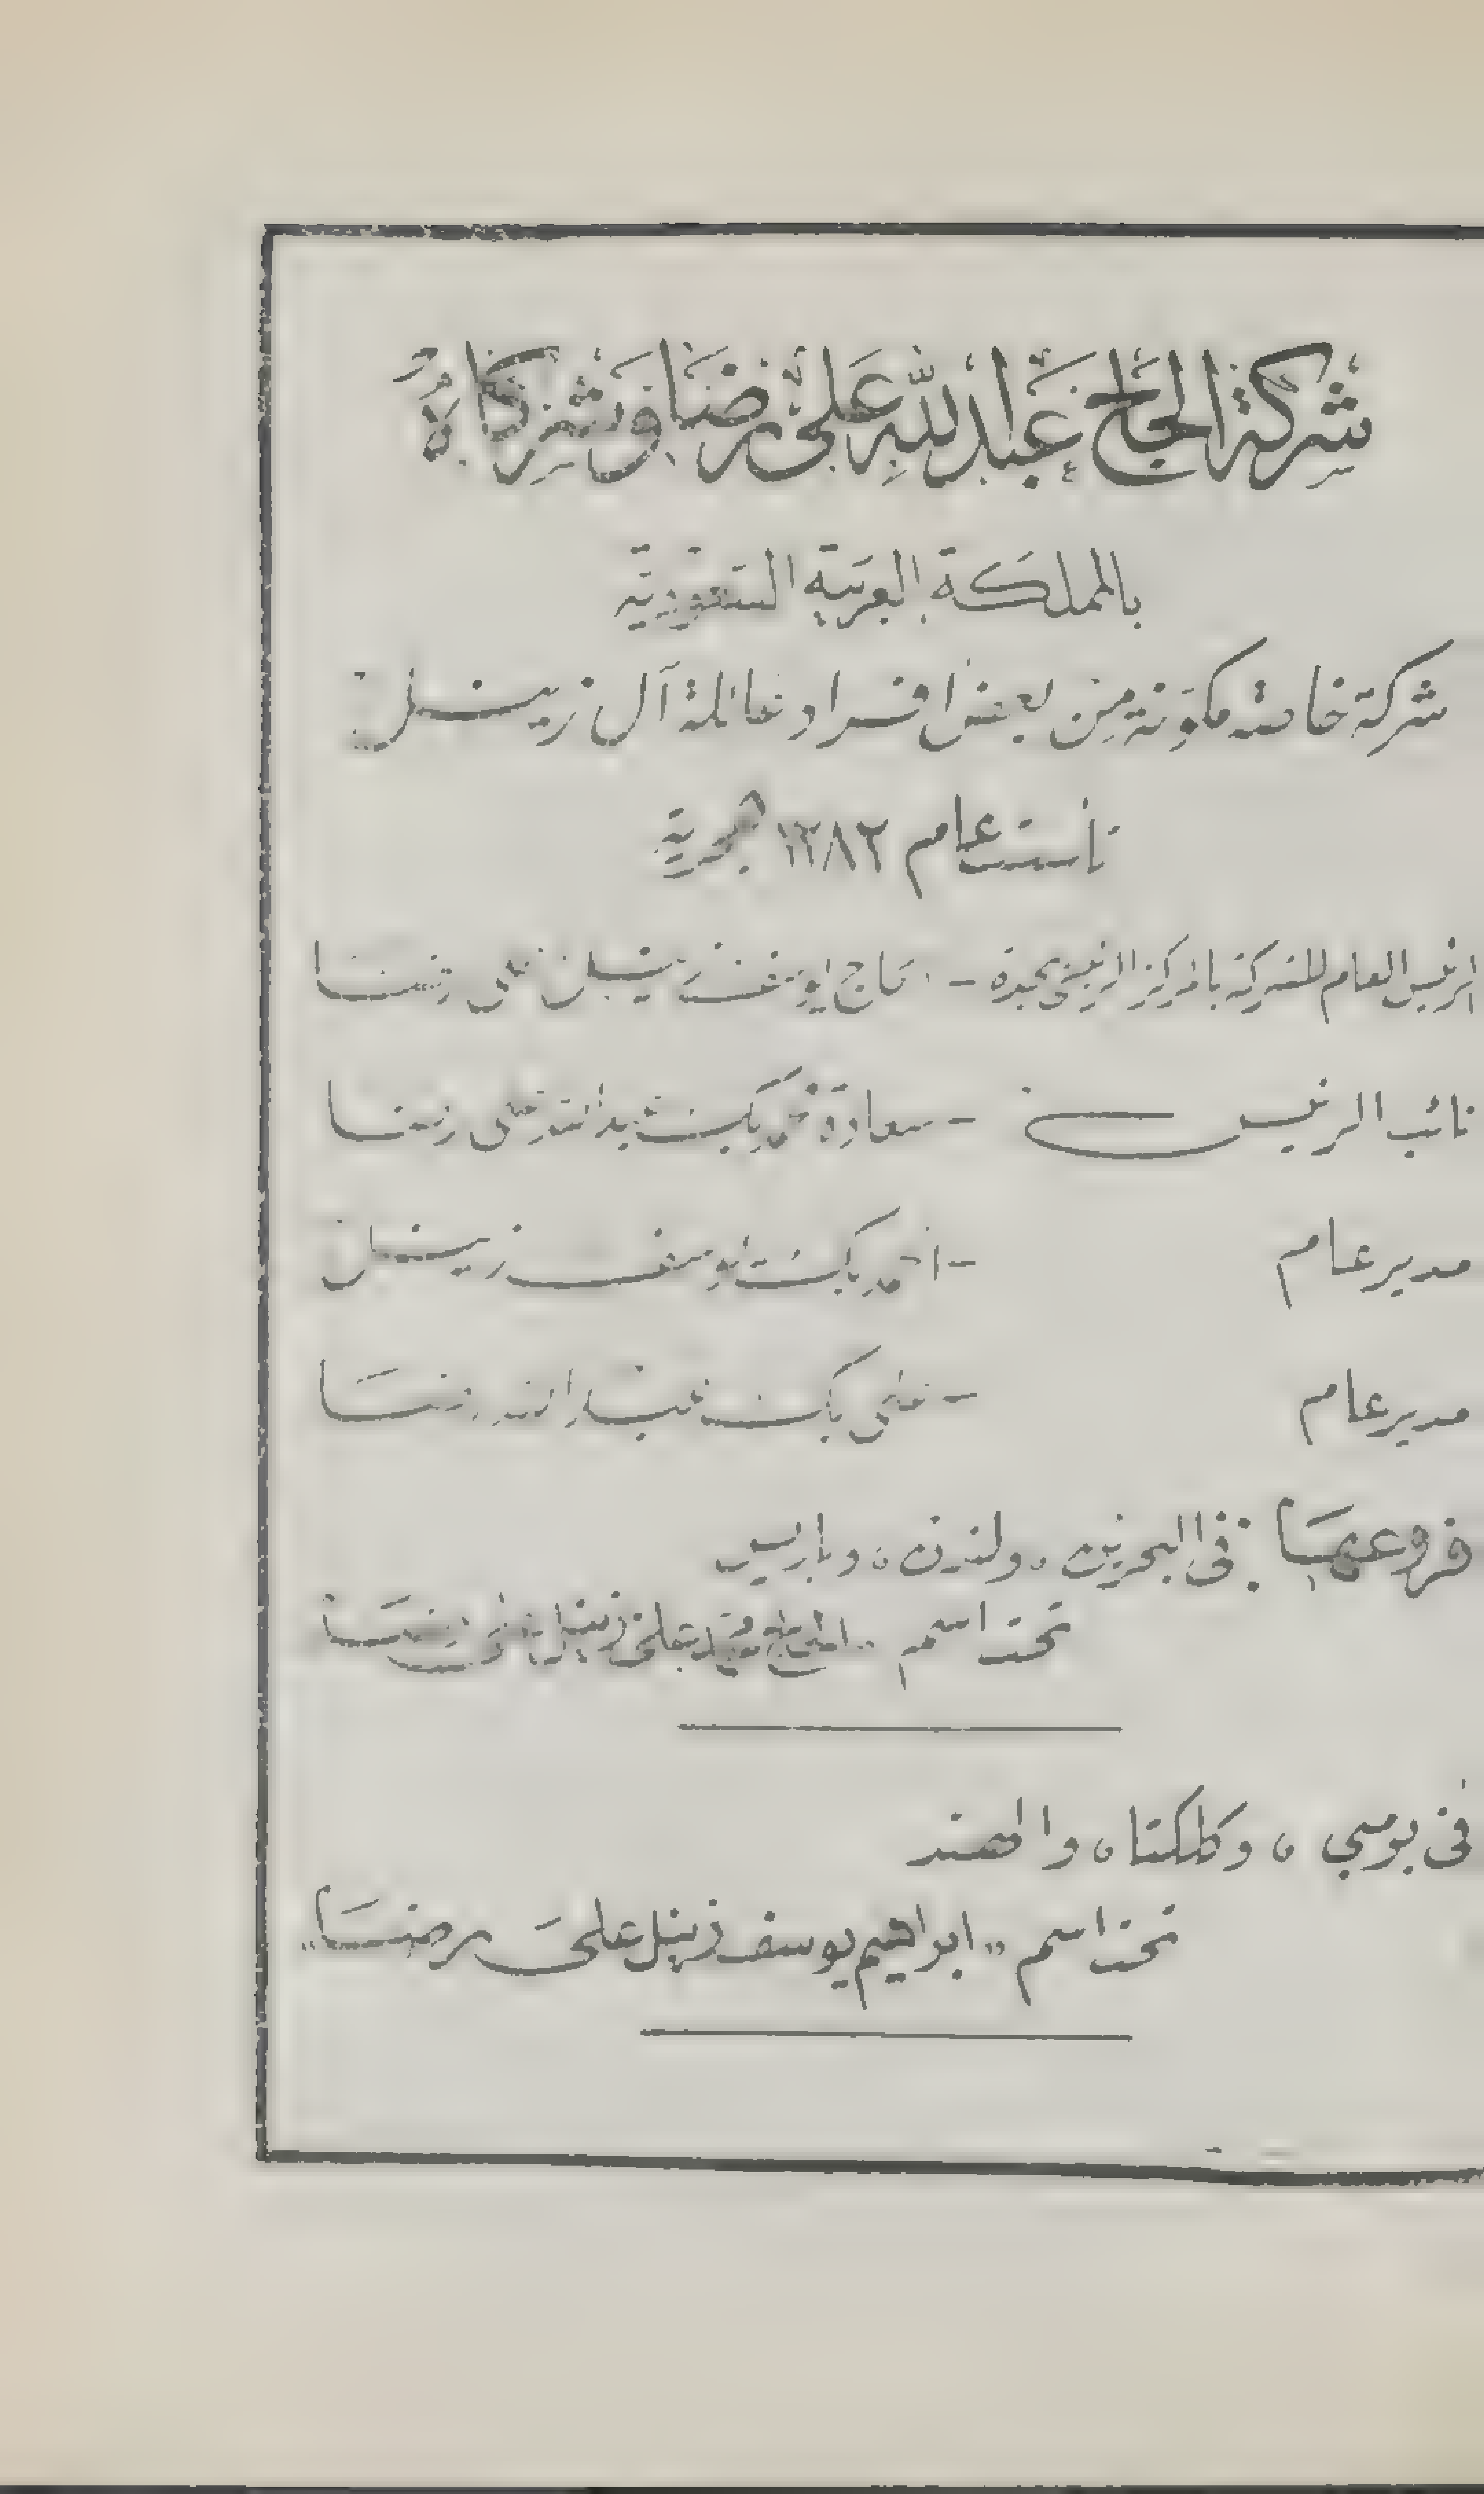 شركة الحاج عبدالله علي رضا وشركاه
بالمملكة العربية السعودية
شركة خاصة مكونة من بعض افراد عائلة آل زينل
تأست عام ١٢٨٢ هجرية
الرئيس العام للشركة بالمركز الرئيسي بجدة - الحاج يوسف زينل على رضا
نائب الرئيس - سعادة محمد بك عبدالله على رضا
مدير عام - احمد بك يوسف زينل
مدير عام - على بك عبدالله رضا
فروعها : في البحرين ، ولندن ، وباريس
تحت اسم " الحاج زينل على رضا
في بومبي ، وكلكتا ، والهند
تحت اسم " ابراهيم يوسف زينل على رضا "